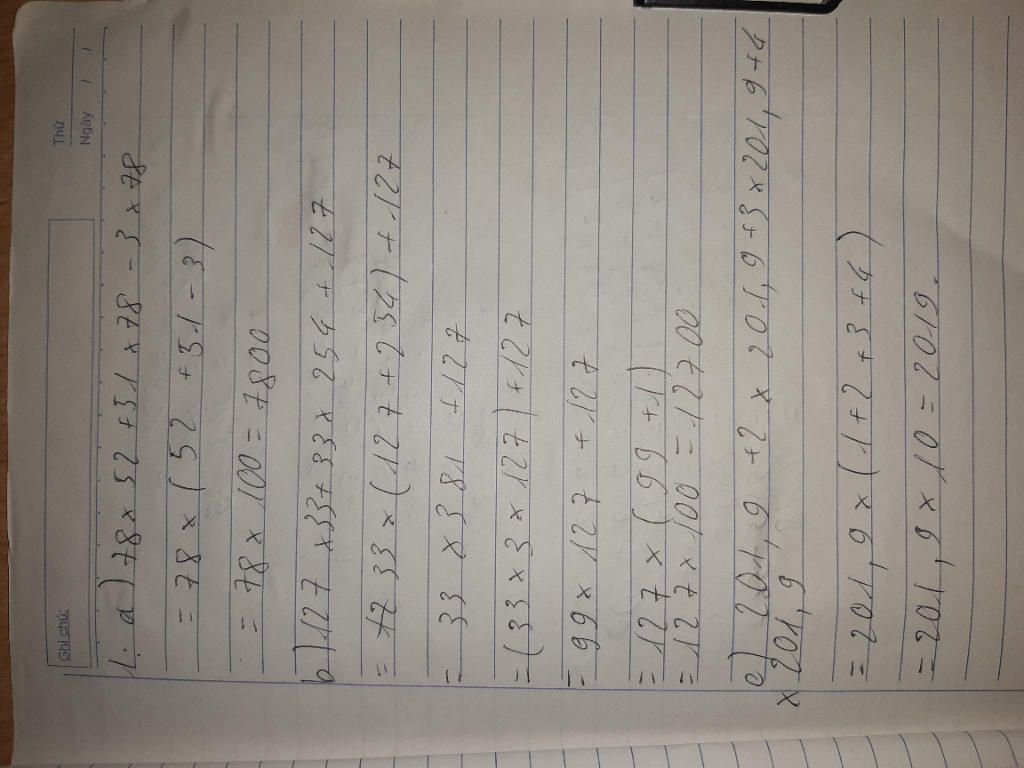 Ghi chú:
Thứ
Ngày / /
1. a) 78 x 52 + 51 x 78 - 3 x 78
= 78 x (52 + 51 - 3)
= 78 x 100 = 7800
b) 127 x 33 + 33 x 254 + 127
= 33 x (127 + 254) + 127
= 33 x 381 + 127
= (33 x 3 x 127) + 127
= 99 x 127 + 127
= 127 x (99 + 1)
= 127 x 100 = 12700
c) 201,9 + 2 x 201,9 + 3 x 201,9 + 4
x 201,9
= 201,9 x (1 + 2 + 3 + 4)
= 201,9 x 10 = 2019.